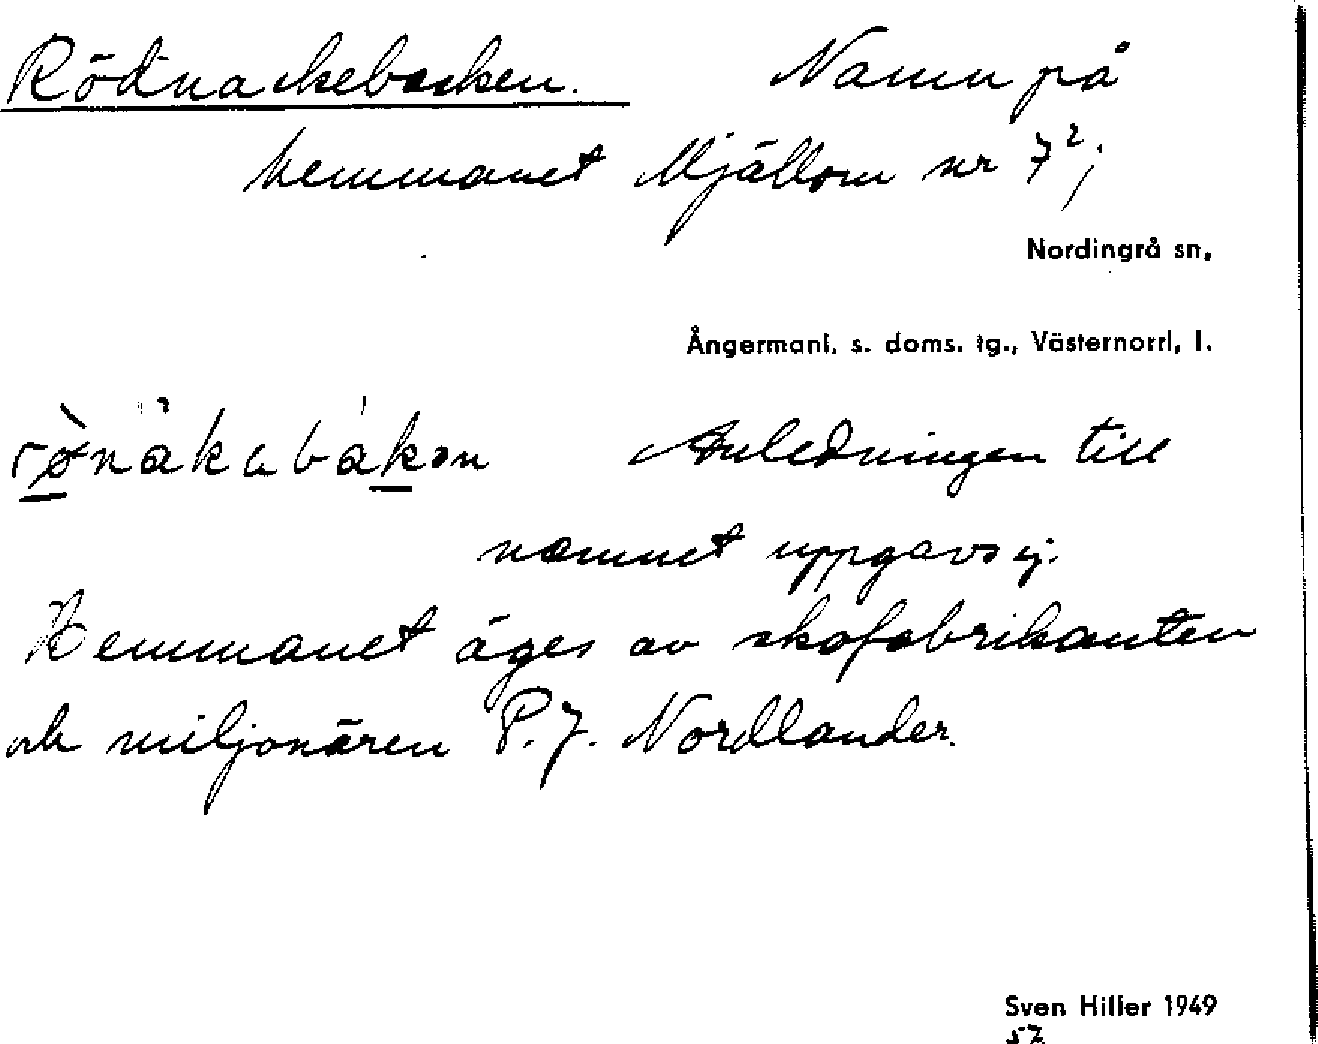 Rödnackebacken. Namn på
hemmanet Mjällom nr 7²;
Nordingrå sn,
Ångermanl. s. doms. tg., Västernorrl. l.
Anledningen till
namnet uppgavs ej.
Hemmanet äges av skofabrikanten
och miljonären P.J. Nordlander.
Sven Hiller 1949
57